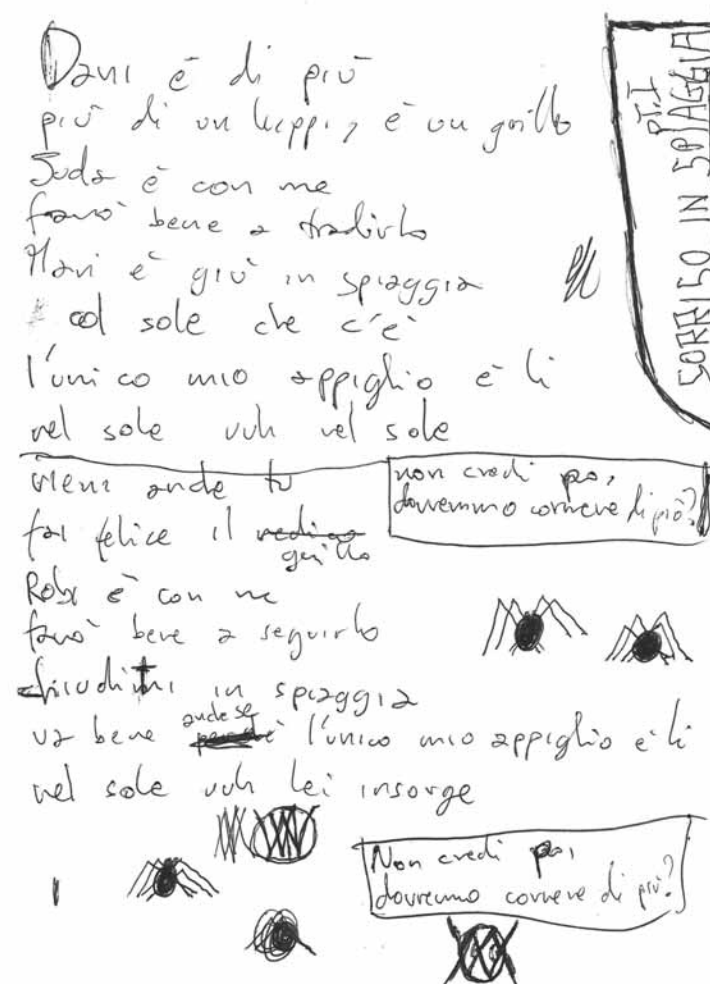 PT. I
SORRISO IN SPIAGGIA
Dani è di più
più di un hippy, è un grillo
Juda è con me
farò bene a tradirlo
Mari è giù in spiaggia
col sole che c'è
l'unico mio appiglio è lì
nel sole uuh nel sole
vieni anche tu
fai felice il grillo
non credi poi,
dovremmo correre di più?
Robx è con me
farò bene a seguirlo
chiudimi in spiaggia
va bene anche se l'unico mio appiglio è lì
nel sole uuh lei insorge
Non credi poi,
dovremmo correre di più?